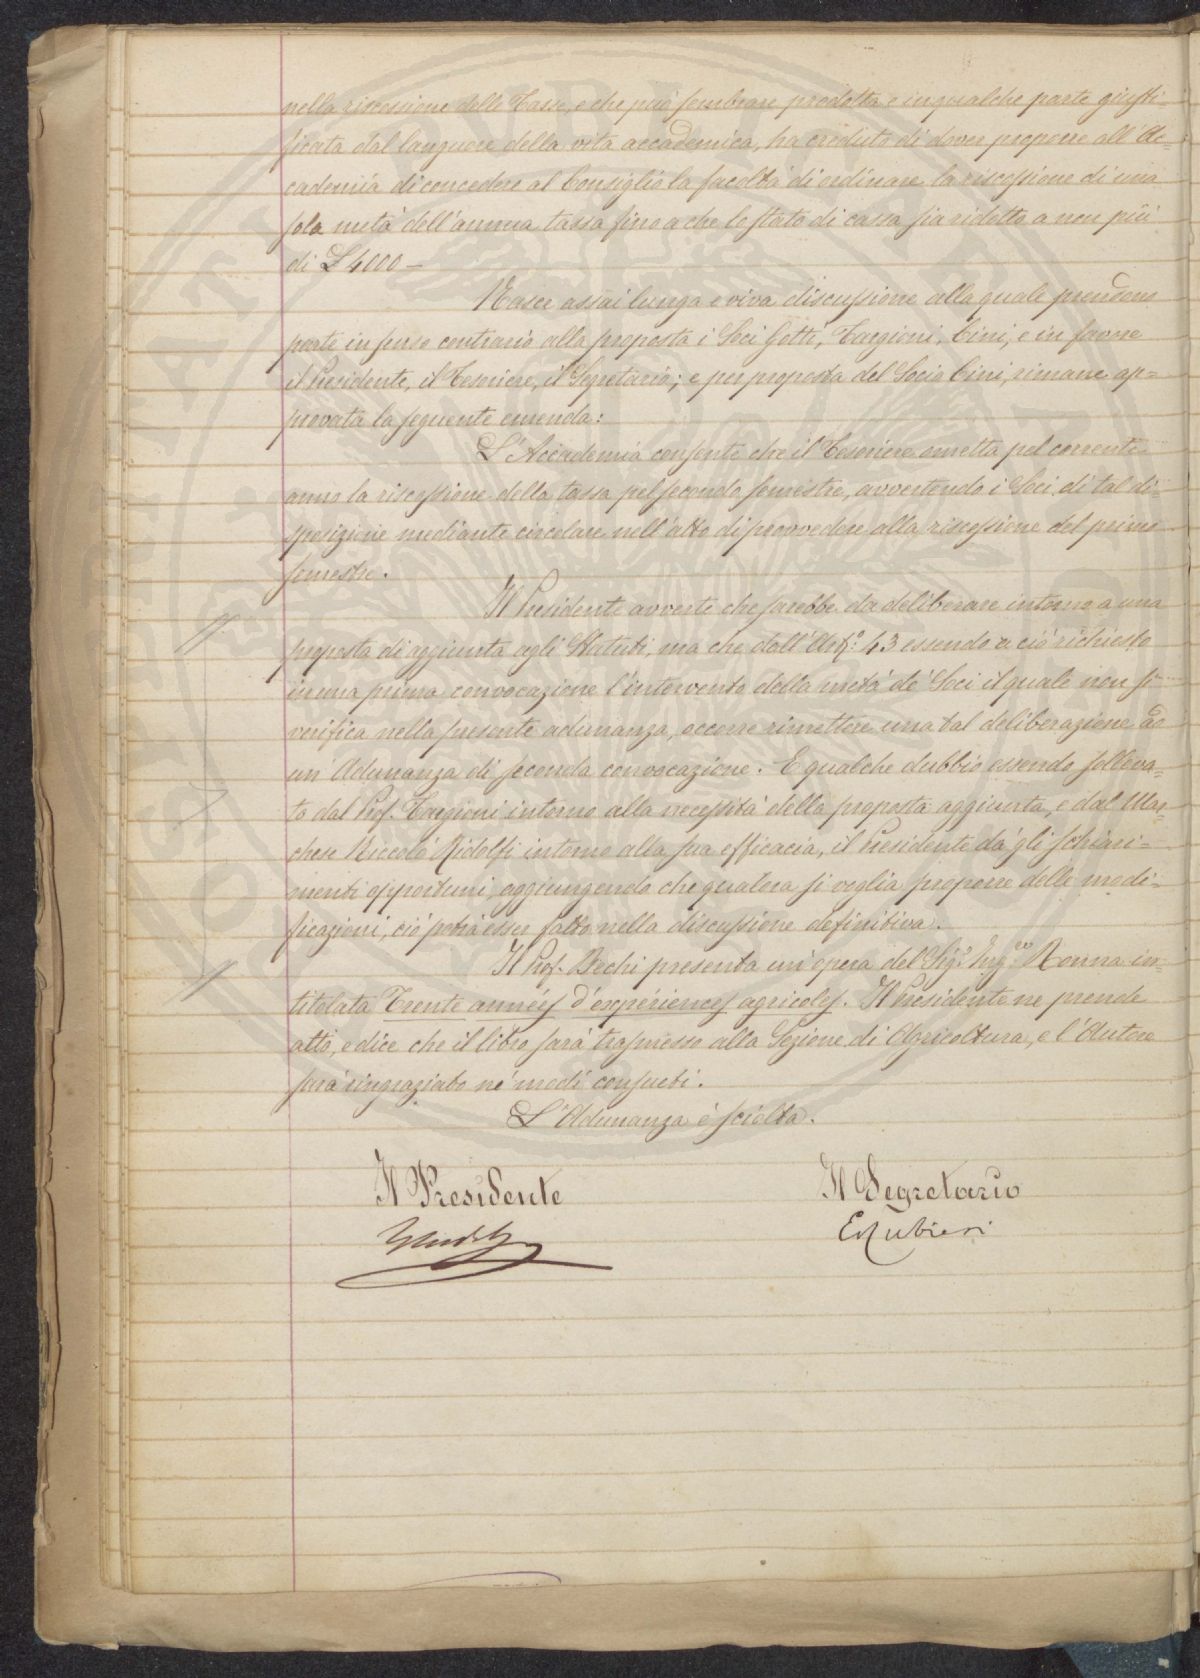 nella riscossione delle Tasse, e che può sembrare prodotta e in qualche parte giusti-
ficata dal languore della vita accademica, ha creduto di dover proporre all'Ac-
cademia di concedere al Consiglio la facoltà di ordinare la riscossione di una
sola metà dell'annua tassa fino a che lo stato di cassa sia ridotto a non più
di L 4000 —
Nasce assai lunga e viva discussione alla quale prendono
parte in senso contrario alla proposta i Soci Gotti, Targioni, Cini, e in favore
il Presidente, il Tesoriere, il Segretario; e per proposta del Socio Cini, rimane ap-
provata la seguente emenda:
L'Accademia consente che il Tesoriere ometta pel corrente
anno la riscossione della tassa pel secondo semestre, avvertendo i Soci di tal di-
sposizione mediante circolare nell'atto di provvedere alla riscossione del primo
semestre.
Il Presidente avverte che sarebbe da deliberare intorno a una
proposta di aggiunta agli Statuti, ma che dall'Art.° 43 essendo a ciò richiesto
in una prima convocazione l'intervento della metà de' Soci il quale non si
verifica nella presente adunanza, occorre rimettere una tal deliberazione ad
un'Adunanza di seconda convocazione. E qualche dubbio essendo solleva-
to dal Prof. Targioni intorno alla necessità della proposta aggiunta, e dal Mar-
chese Niccolò Ridolfi intorno alla sua efficacia, il Presidente dà gli schiari-
menti opportuni, aggiungendo che qualora si voglia proporre delle modi-
ficazioni, ciò potrà esser fatto nella discussione definitiva.
Il Prof. Bechi presenta un'opera del Sig.r Ing.re Ronna in-
titolata Trente années d'expériences agricoles. Il Presidente ne prende
atto, e dice che il libro sarà trasmesso alla Sezione di Agricoltura, e l'Autore
sarà ringraziato ne' modi consueti.
L'Adunanza è sciolta.
Il Presidente
Il Segretario
E Rubieri